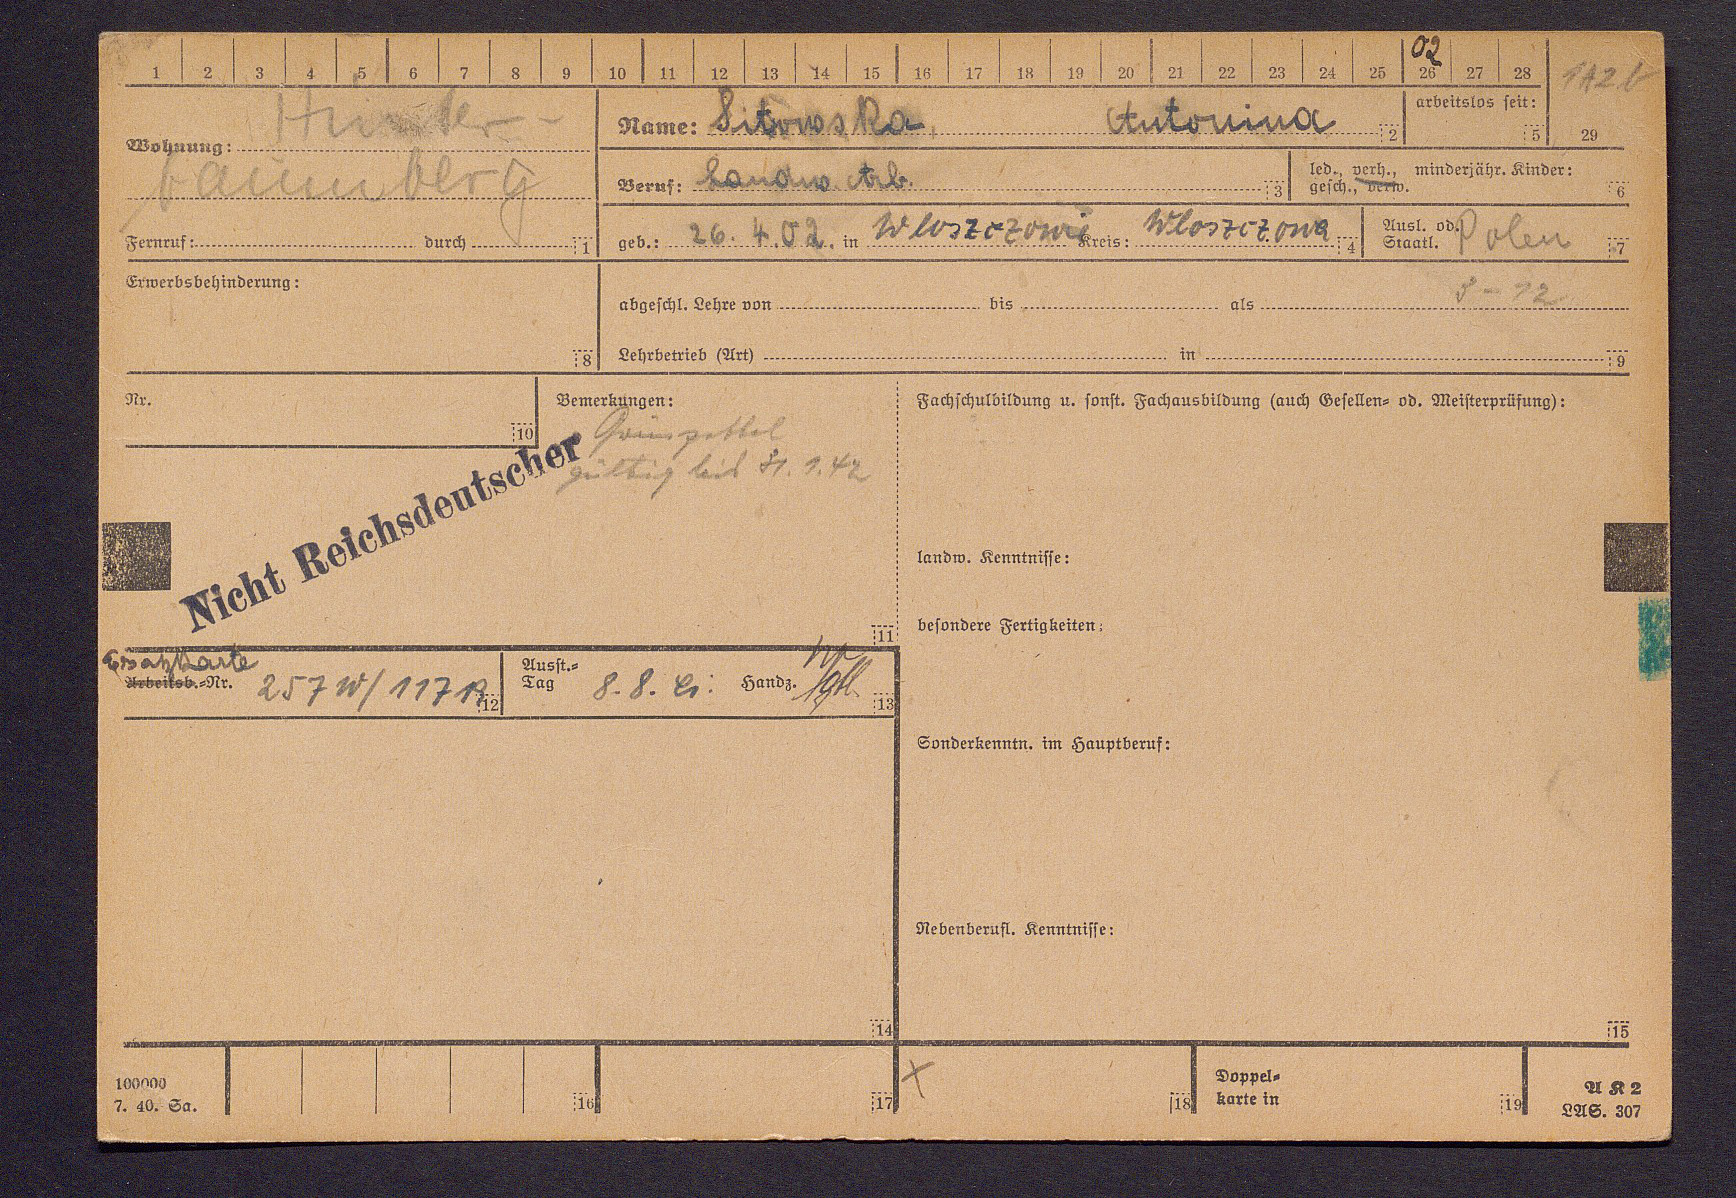 1 2 3 4 5 6 7 8 9 10 11 12 13 14 15 16 17 18 19 20 21 22 23 24 25 26 27 28
02
Wohnung:
baumberg
Fernruf: durch 1
Name: Sitowska, Antonina 2
arbeitslos seit: 5
29
Beruf: Landw. Arb. 3
led., verh., minderjähr. Kinder:
gesch., verw. 6
geb.: 26. 4. 02. in Wloszczowie Kreis: Wloszczowa 4
Ausl. od.
Staatl. Polen 7
Erwerbsbehinderung:
8
abgeschl. Lehre von bis als
Lehrbetrieb (Art) in 9
Nr.
10
Bemerkungen:
gültig bis 31. 1. 42
Nicht Reichsdeutscher
11
Fachschulbildung u. sonst. Fachausbildung (auch Gesellen= od. Meisterprüfung):
landw. Kenntnisse:
besondere Fertigkeiten:
Sonderkenntn. im Hauptberuf:
Nebenberufl. Kenntnisse:
15
Ersatzkarte
Arbeitsb.=Nr. 257 W/117 12
Ausst.=
Tag 8. 8. Handz. 13
14
100000
7. 40. Sa.
16
17
x
18
Doppel=
karte in 19
A K 2
LAS. 307